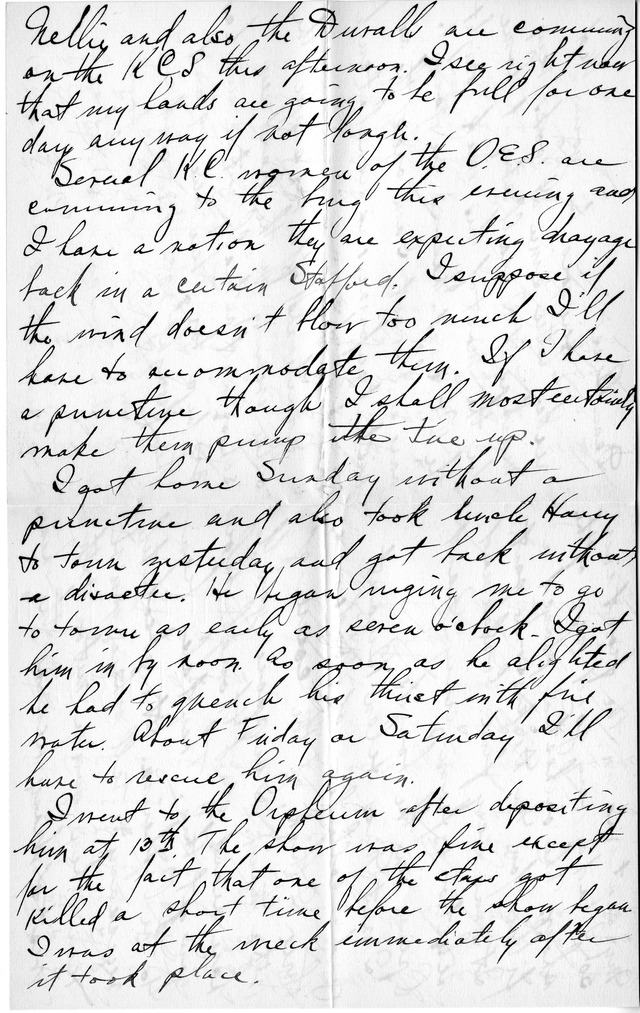 Nellie and also the Duvalls are comming
on the KCS this afternoon. I see right now
that my hands are going to be full for one
day anyway if not longer.
Several K.C. women of the O.E.S. are
comming to the burg this evening and
I have a notion they are expecting drayage
back in a certain Stafford. I suppose if
the wind doesn't blow too much I'll
have to accommodate them. If I have
a puncture though I shall most certainly
make them pump the tire up.
I got home Sunday without a
puncture and also took Uncle Harry
to town yesterday and got back without
a disaster. He began urging me to go
to town as early as seven o'clock. I got
him in by noon. As soon as he alighted
he had to quench his thirst with fire
water. About Friday or Saturday I'll
have to rescue him again.
I went to the Orpheum after depositing
him at 13th. The show was fine except
for the fact that one of the stars got
killed a short time before the show began
I was at the wreck immediately after
it took place.